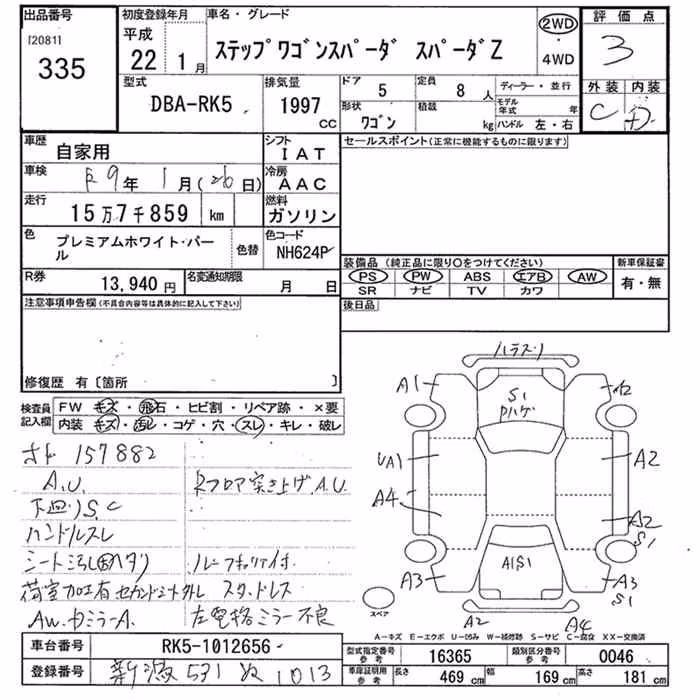 出品番号
[2081]
335
初度登録年月
平成
22年 1月
車名・グレード
ステップワゴンスパーダ スパーダZ
2WD
・
4WD
評価点
3
外装 内装
C D
型式
DBA-RK5
排気量
1997
CC
ドア
5
定員
8人
形状
ワゴン
積載
kg
ディーラー・並行
モデル年式 年
ハンドル 左・右
車歴
自家用
シフト
IAT
セールスポイント(正常に機能するものに限ります)
車検
R9年 1月(26日)
冷房
AAC
走行
15万7千859 km
燃料
ガソリン
色
プレミアムホワイト・パール
色替
色コード
NH624P
R券
13,940円
名変通知期限
月 日
装備品 (純正品に限り○をつけてください)
PS PW ABS エアB AW
SR ナビ TV カワ
新車保証書
有・無
後日品
注意事項申告欄(不具合内容等は具体的に記入して下さい)
修復歴 有〔箇所 〕
検査員記入欄
FW キズ・飛石・ヒビ割・リペア跡・×要
内装 キズ・汚レ・コゲ・穴・スレ・キレ・破レ
オド 157882
A.U.
下回りS.C
ハンドルスレ
シート汚レ
荷室加工有 セカンドシート外し スタッドレス
AW.カミラーA.
Rフロア突き上げ.A.U
ルーフキャリア付
左電格ミラー不良
ハラスリ
A1
S1
Pハゲ
A2
UA1
A2
A4
A2
S1
A1S1
A3
A3
S1
スペア
A2
A4
A-キズ E-エクボ U-凹み W-補修跡 S-サビ C-腐食 XX-交換済
車台番号
RK5-1012656
登録番号
新潟 531 ぬ 1013
型式指定番号
参考
16365
類別区分番号
参考
0046
車庫証明用
参考
長さ
469 cm
幅
169 cm
高さ
181 cm